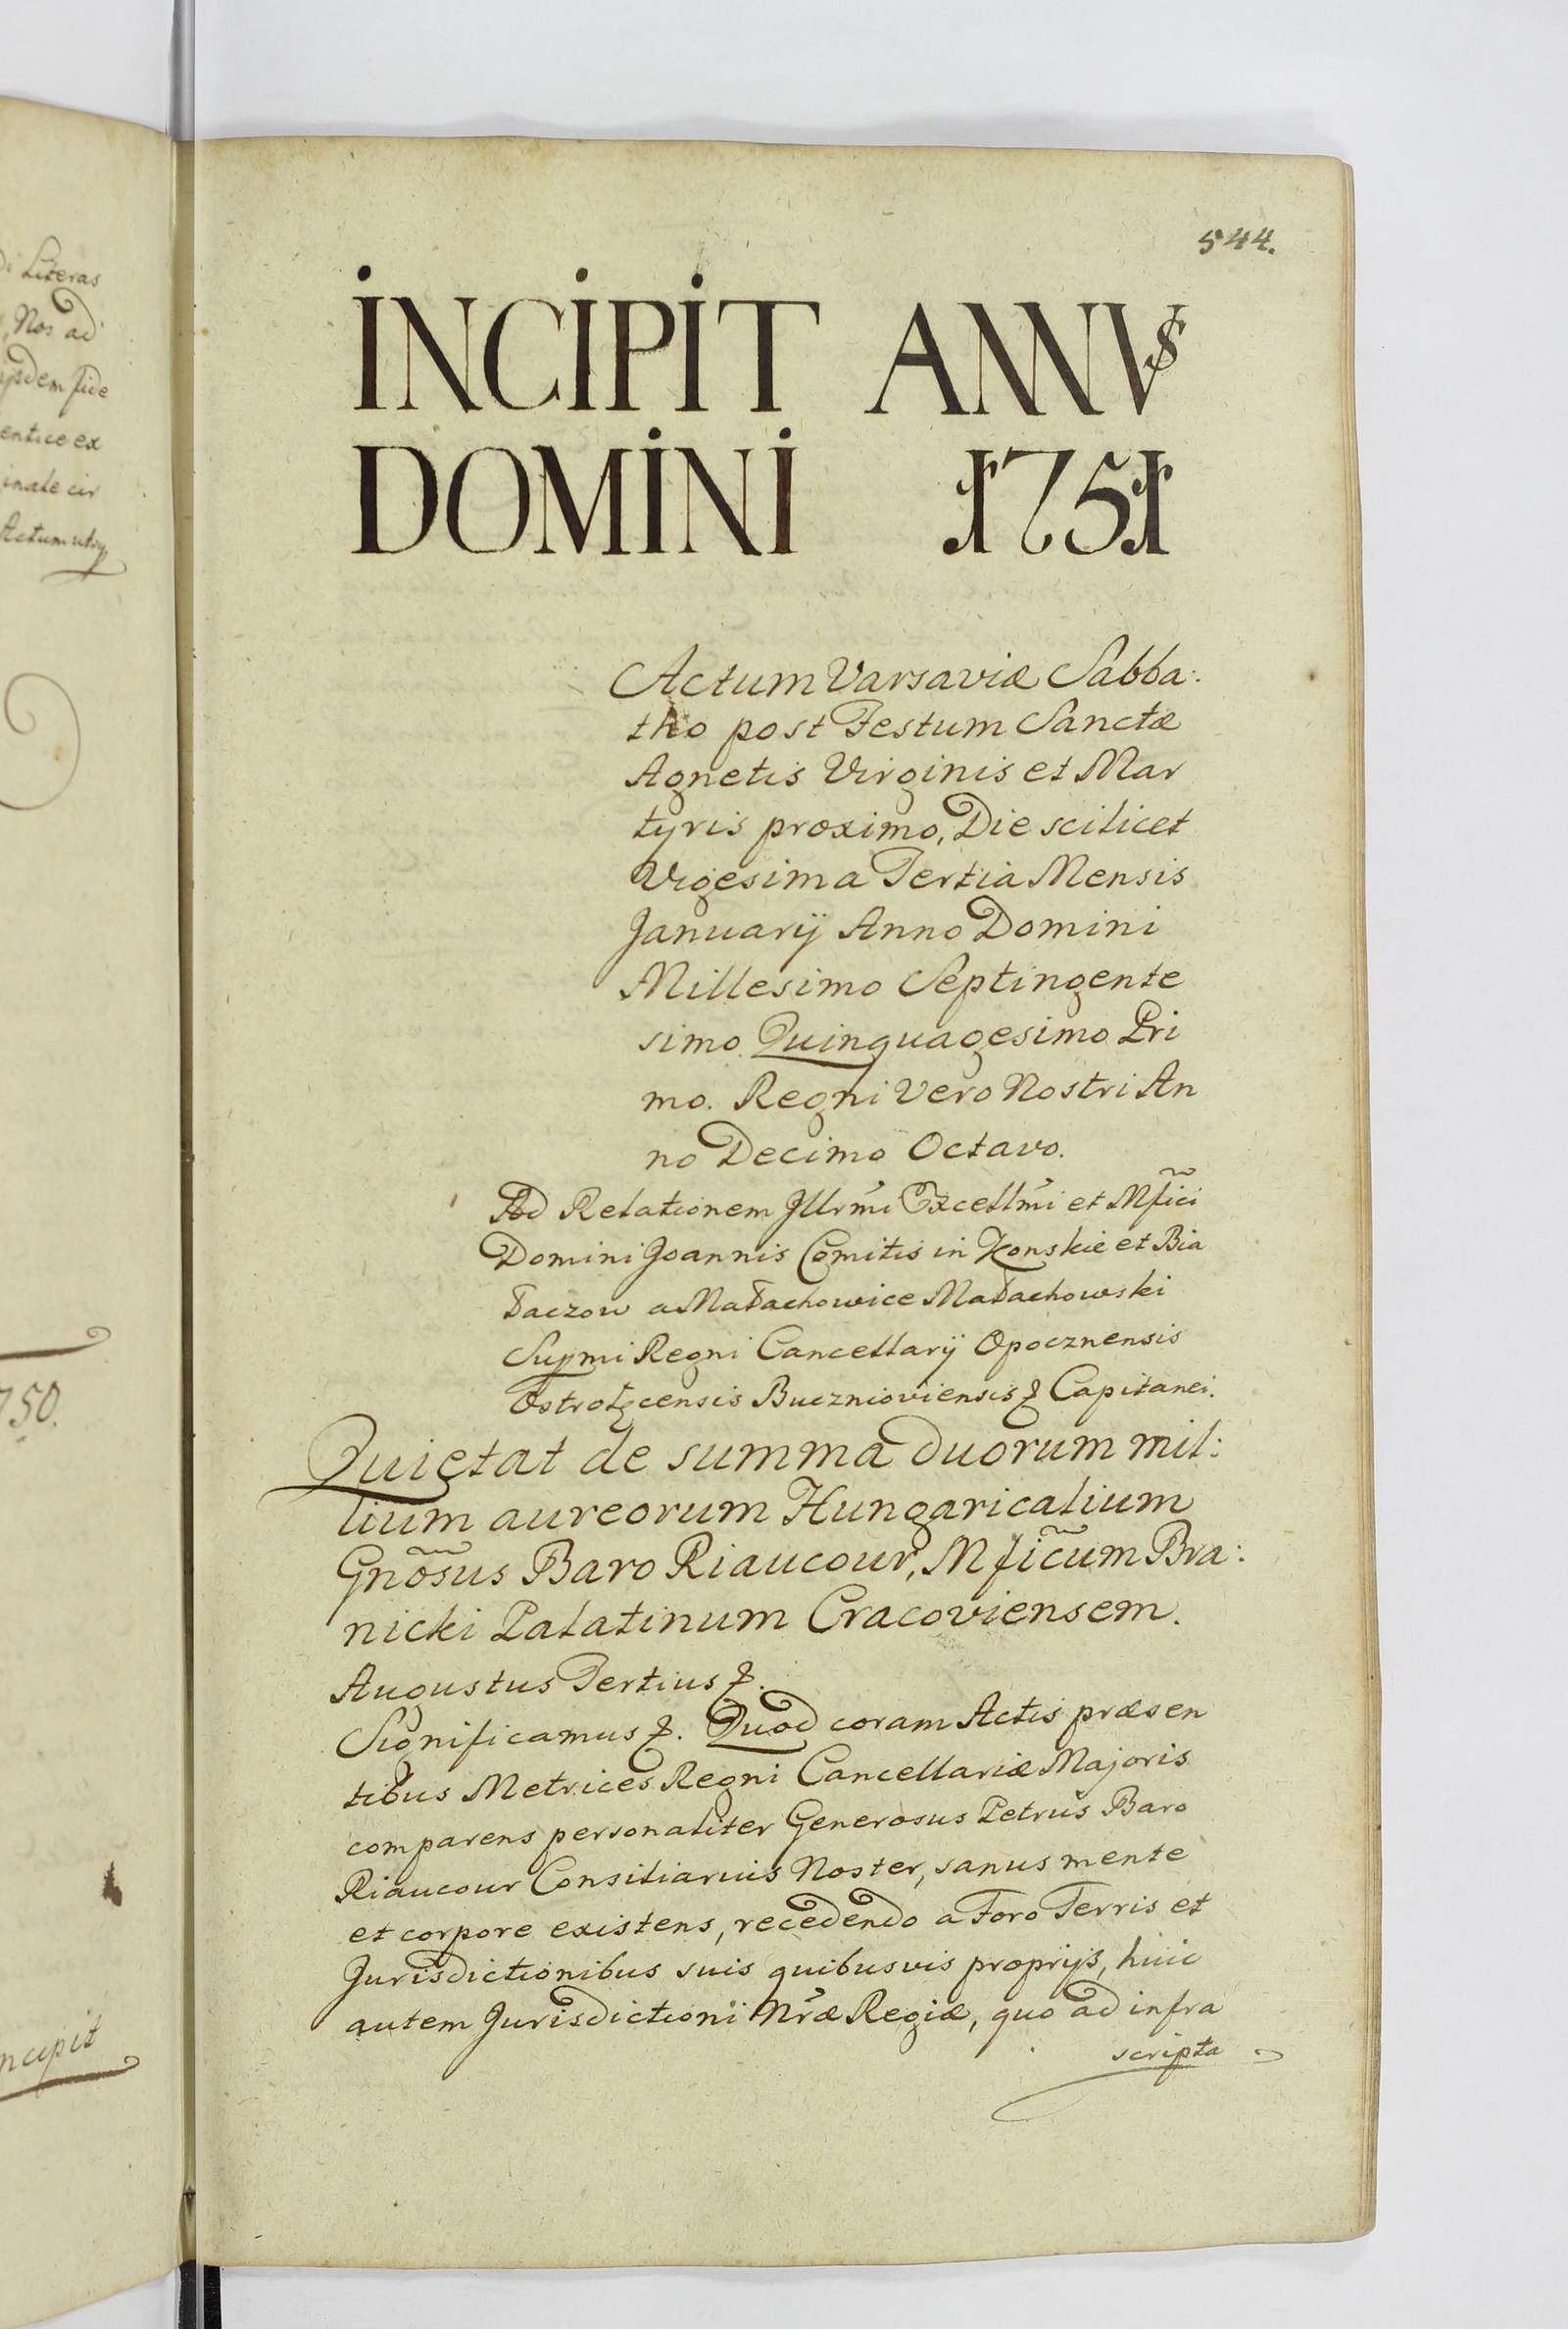 Di Literas
, Nos ad
ijsdem fide
entice ex
inale cir
Actum utsq
750.
ncipit
544.
INCIPIT ANNVS
DOMINI 1751
Actum Varsaviæ Sabba:
tho post Festum Sanctæ
Agnetis Virginis et Mar
tyris proximo, Die scilicet
Vigesima Tertia Mensis
Januarij Anno Domini
Millesimo Septingente
simo Quinquagesimo Pri
mo. Regni Vero Nostri An
no Decimo Octavo.
Ad Relationem Jllrmi Excellmi et Mfici
Domini Joannis Comitis in Konskie et Bia
łaczow a Małachowice Małachowski
Supmi Regni Cancellarij Opocznensis
Ostrołęcensis Bucznioviensis & Capitanei.
Quietat de summa duorum mil:
lium aureorum Hungaricalium
Gnosus Baro Riaucour, Mficum Bra:
nicki Palatinum Cracoviensem.
Augustus Tertius &.
Significamus &. Quod coram Actis præsen
tibus Metrices Regni Cancellariæ Majoris
comparens personaliter Generosus Petrus Baro
Riaucour Consiliarius Noster, sanus mente
et corpore existens, recedendo a Foro Terris et
Jurisdictionibus suis quibusvis proprijs, huic
autem Jurisdictioni Nræ Regiæ, quo ad infra
scripta